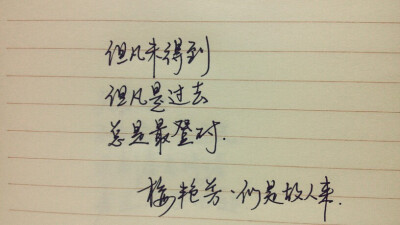 但凡未得到
但凡是过去
总是最登对.
梅艳芳·似是故人来.